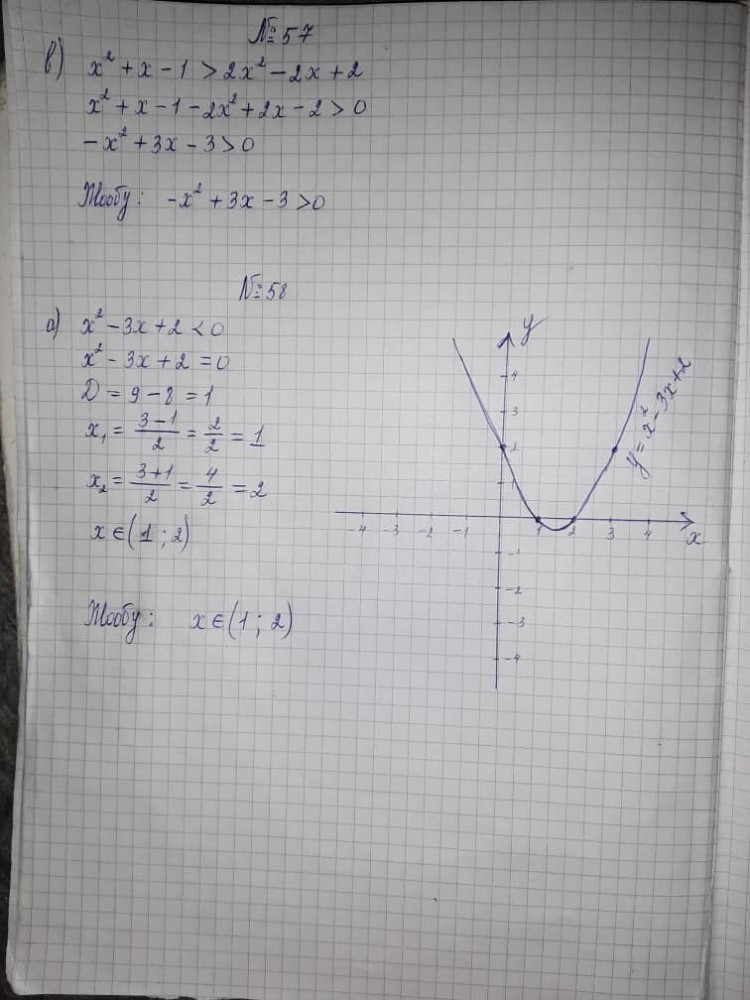 №57
в) x² + x - 1 > 2x² - 2x + 2
x² + x - 1 - 2x² + 2x - 2 > 0
-x² + 3x - 3 > 0
Жообу: -x² + 3x - 3 > 0
№58
а) x² - 3x + 2 < 0
x² - 3x + 2 = 0
D = 9 - 8 = 1
x₁ = (3-1)/2 = 2/2 = 1
x₂ = (3+1)/2 = 4/2 = 2
x ∈ (1; 2)
Жообу: x ∈ (1; 2)
y
4
3
2
1
y = x² - 3x + 2
-4 -3 -2 -1 1 2 3 4 x
-1
-2
-3
-4